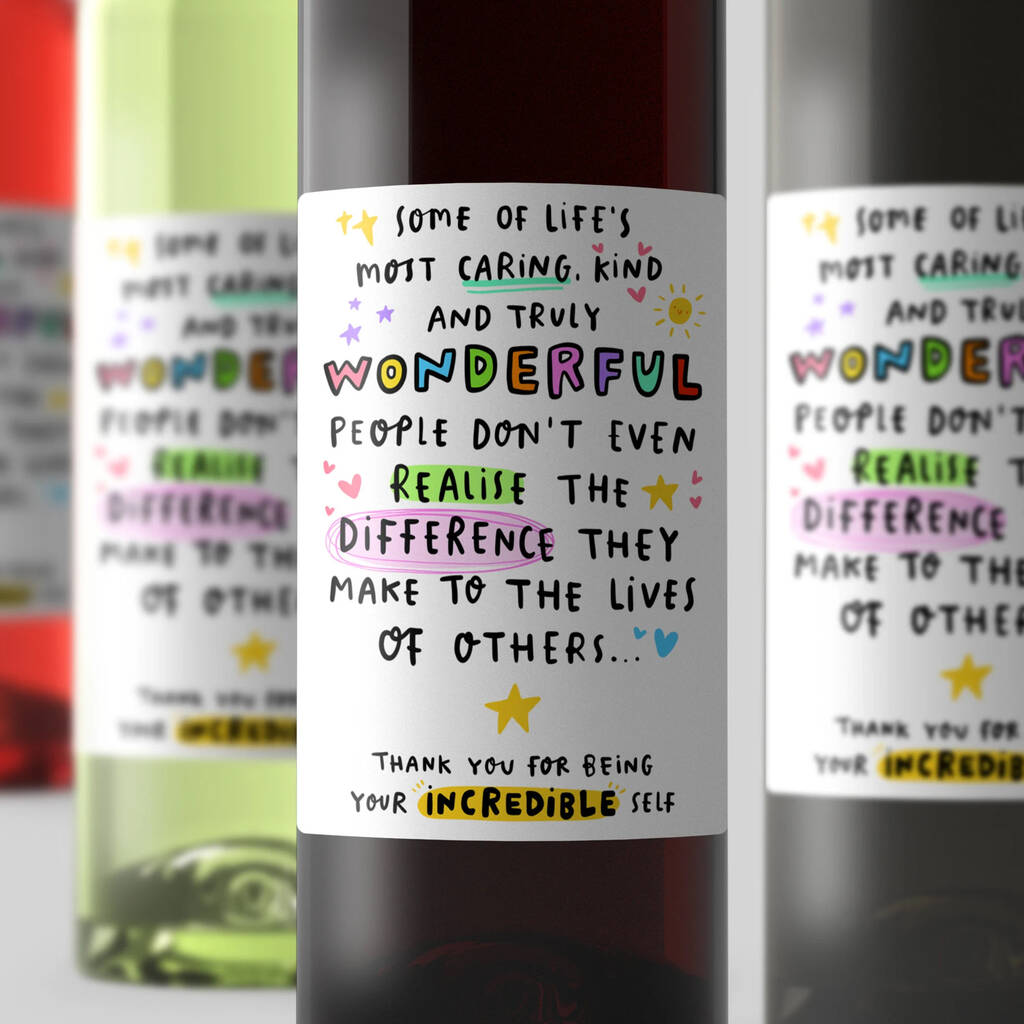 SOME OF LIFE'S
MOST CARING, KIND
AND TRULY
WONDERFUL
PEOPLE DON'T EVEN
REALISE THE
DIFFERENCE THEY
MAKE TO THE LIVES
OF OTHERS...
THANK YOU FOR BEING
YOUR INCREDIBLE SELF
SOME OF
MOST CARING
AND
WONDER
PEOPLE DON'T
REALISE
DIFFERENCE
MAKE TO
OF OTHE
THANK YOU FOR
YOUR INCREDIB
SOME OF LIF
MOST CARING,
AND TRUL
WONDER
PEOPLE DON'T
REALISE T
DIFFERENCE
MAKE TO THE
OF OTHER
THANK YOU FOR
YOUR INCREDIB